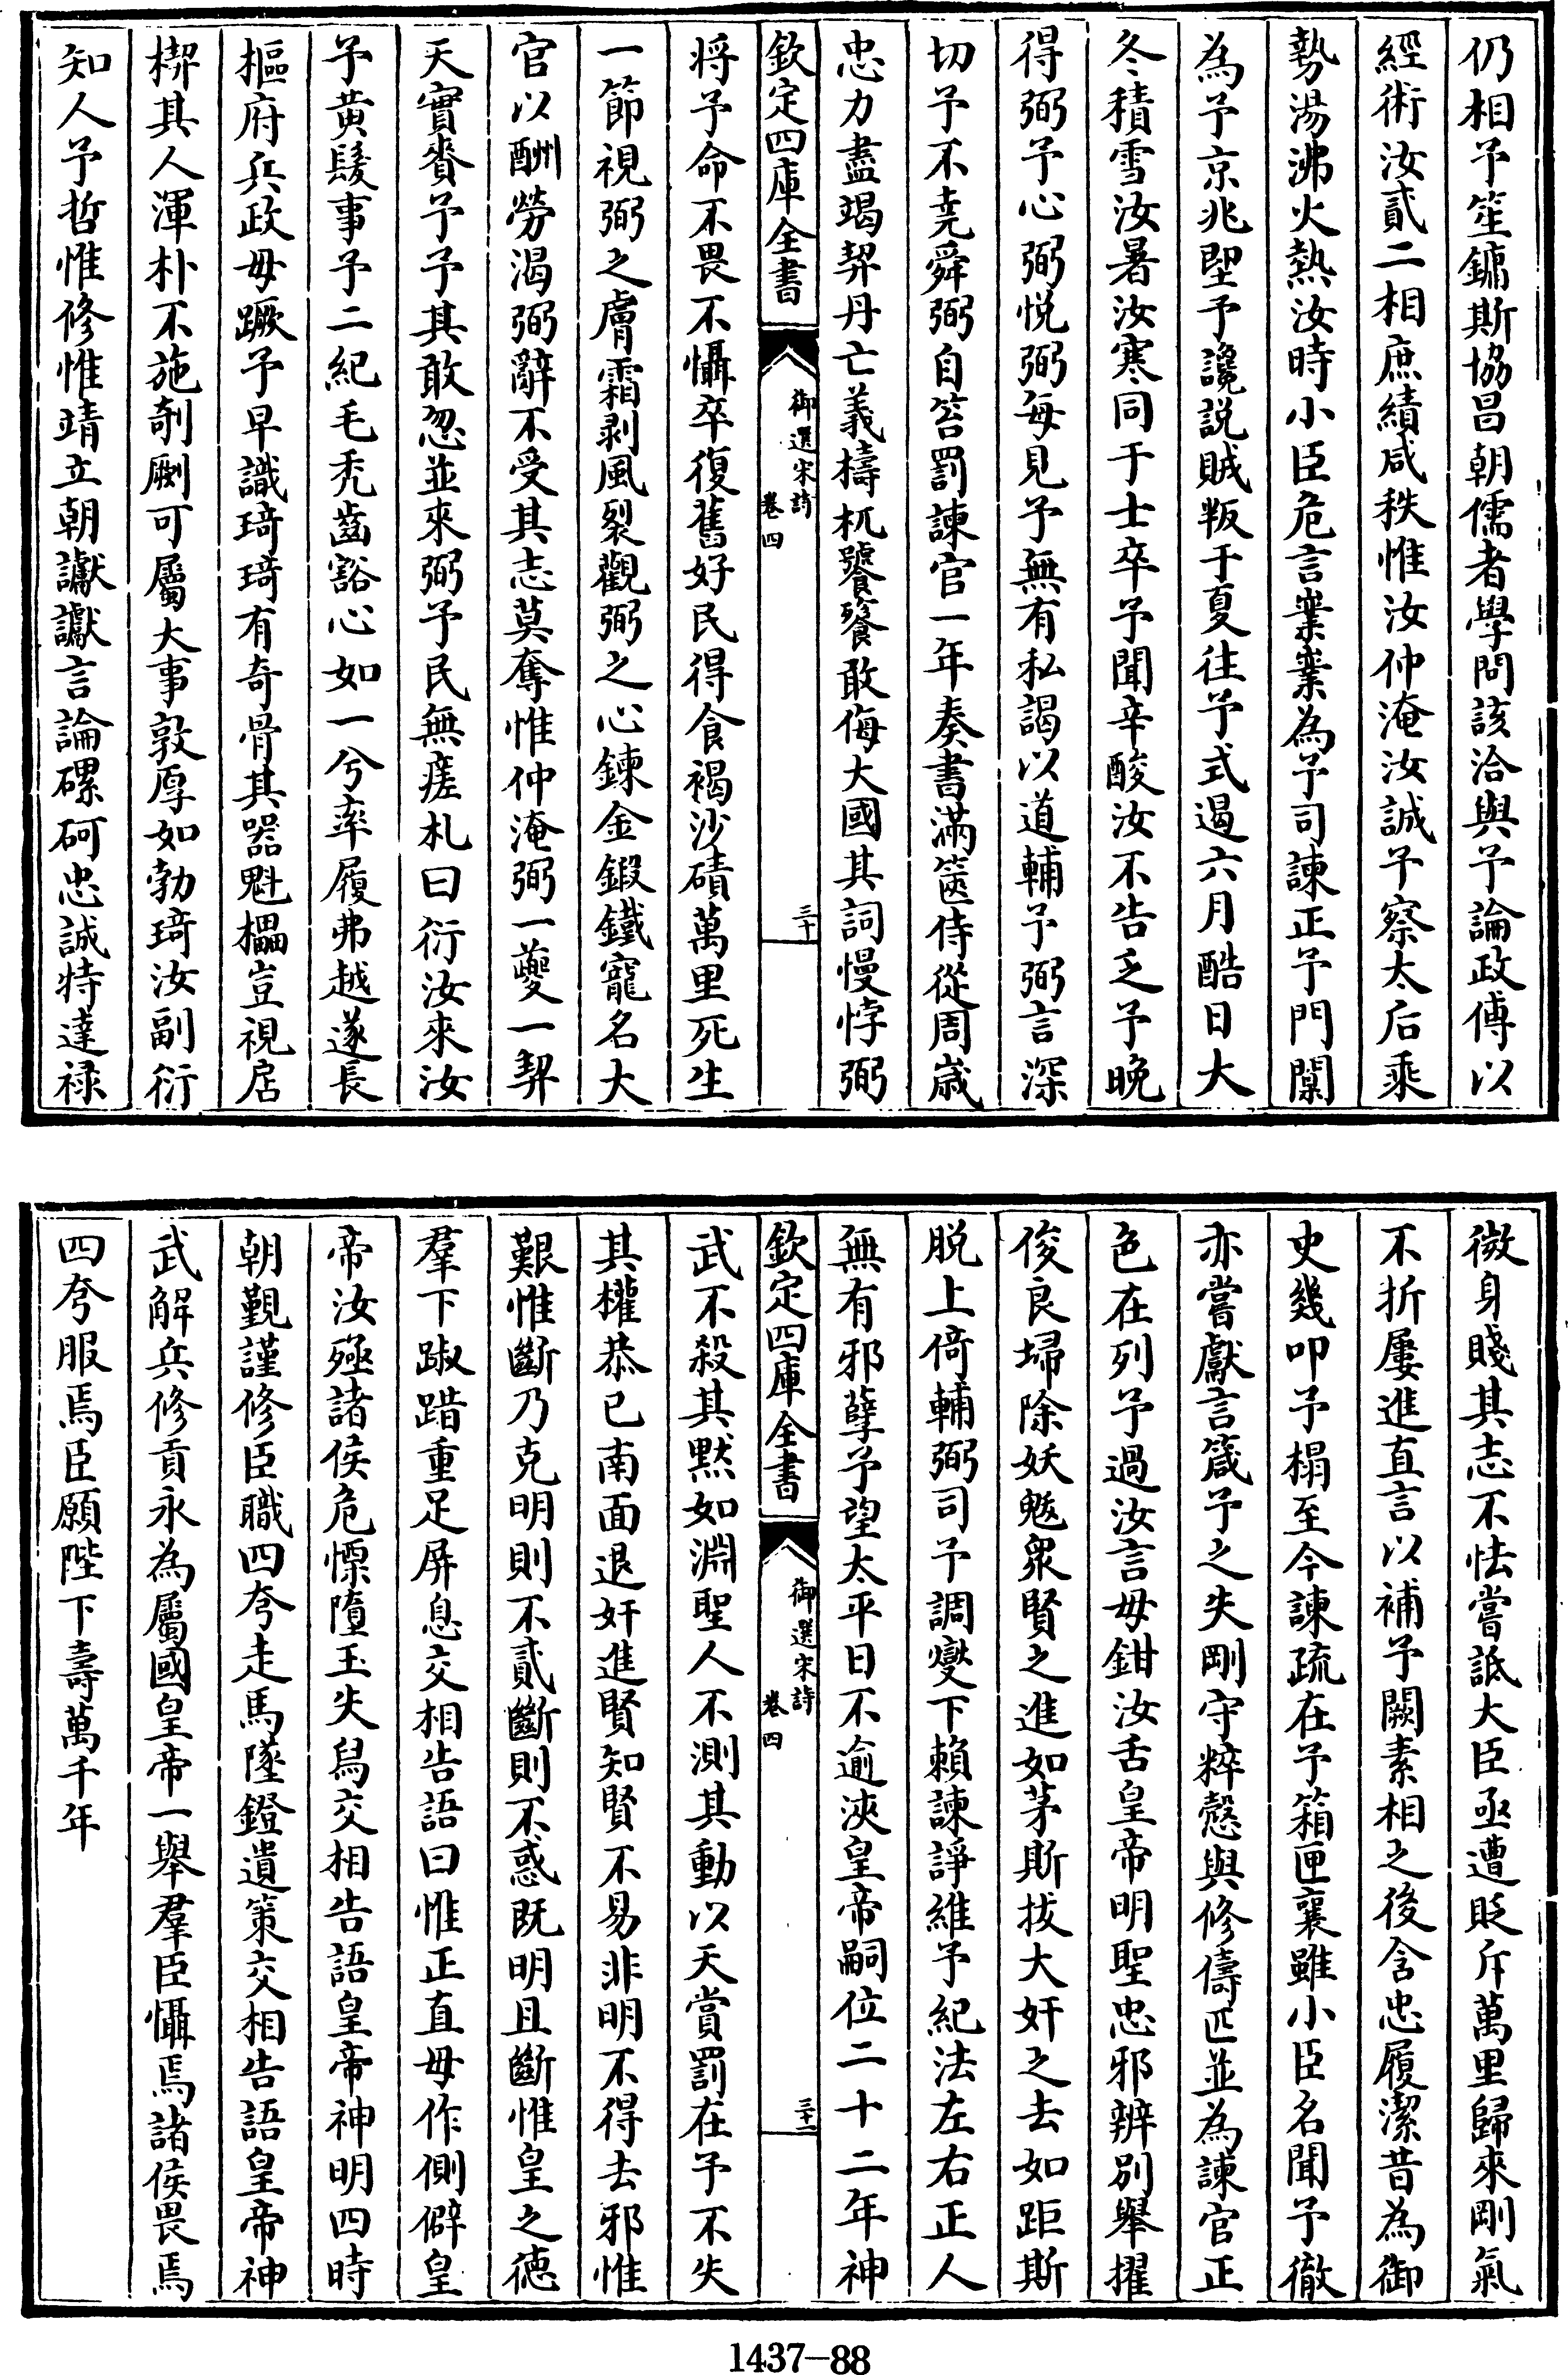 仍相予笙鏞斯協昌朝儒者學問該洽與予論政傅以
經術汝貳二相庶績咸秩惟汝仲淹汝誠予察太后乘
勢湯沸火熱汝時小臣危言嶪嶪為予司諫正予門闑
為予京兆堲予讒説賊叛于夏往予式遏六月酷日大
冬積雪汝暑汝寒同于士卒予聞辛酸汝不告乏予晚
得弼予心弼悅弼每見予無有私謁以道輔予弼言深
切予不堯舜弼自笞罰諫官一年奏書滿篋侍從周歲
忠力盡竭契丹亡義檮杌饕餮敢侮大國其詞慢悖弼
欽定四庫全書
御選宋詩
卷四
三十
將予命不畏不懾卒復舊好民得食褐沙磧萬里死生
一節視弼之膚霜剥風裂觀弼之心鍊金鍛鐵寵名大
官以酬勞渴弼辭不受其志莫奪惟仲淹弼一夔一契
天實賚予予其敢忽並來弼予民無瘥札曰衍汝來汝
予黄髮事予二紀毛禿齒豁心如一兮率履弗越遂長
樞府兵政毋蹶予早識琦琦有奇骨其器魁櫑豈視扂
楔其人渾朴不施剞劂可屬大事敦厚如勃琦汝副衍
知人予哲惟修惟靖立朝讞讞言論磥砢忠誠特達禄
微身賤其志不怯嘗詆大臣亟遭貶斥萬里歸來剛氣
不折屢進直言以補予闕素相之後含忠履潔昔為御
史幾叩予榻至今諫疏在予箱匣襄雖小臣名聞予徹
亦嘗獻言箴予之失剛守粹慤與修儔匹並為諫官正
色在列予過汝言毋鉗汝舌皇帝明聖忠邪辨别舉擢
俊良埽除妖魃衆賢之進如茅斯拔大奸之去如距斯
脱上倚輔弼司予調燮下賴諫諍維予紀法左右正人
無有邪孽予望太平日不逾浹皇帝嗣位二十二年神
欽定四庫全書
御選宋詩
卷四
三十一
武不殺其黙如淵聖人不測其動以天賞罰在予不失
其權恭已南面退奸進賢知賢不易非明不得去邪惟
艱惟斷乃克明則不貳斷則不惑既明且斷惟皇之徳
羣下踧踖重足屏息交相告語曰惟正直毋作側僻皇
帝汝殛諸侯危慄墮玉失舄交相告語皇帝神明四時
朝覲謹修臣職四夸走馬墜鐙遺策交相告語皇帝神
武解兵修貢永為屬國皇帝一舉羣臣懾焉諸侯畏焉
四夸服焉臣願陛下壽萬千年
1437—88